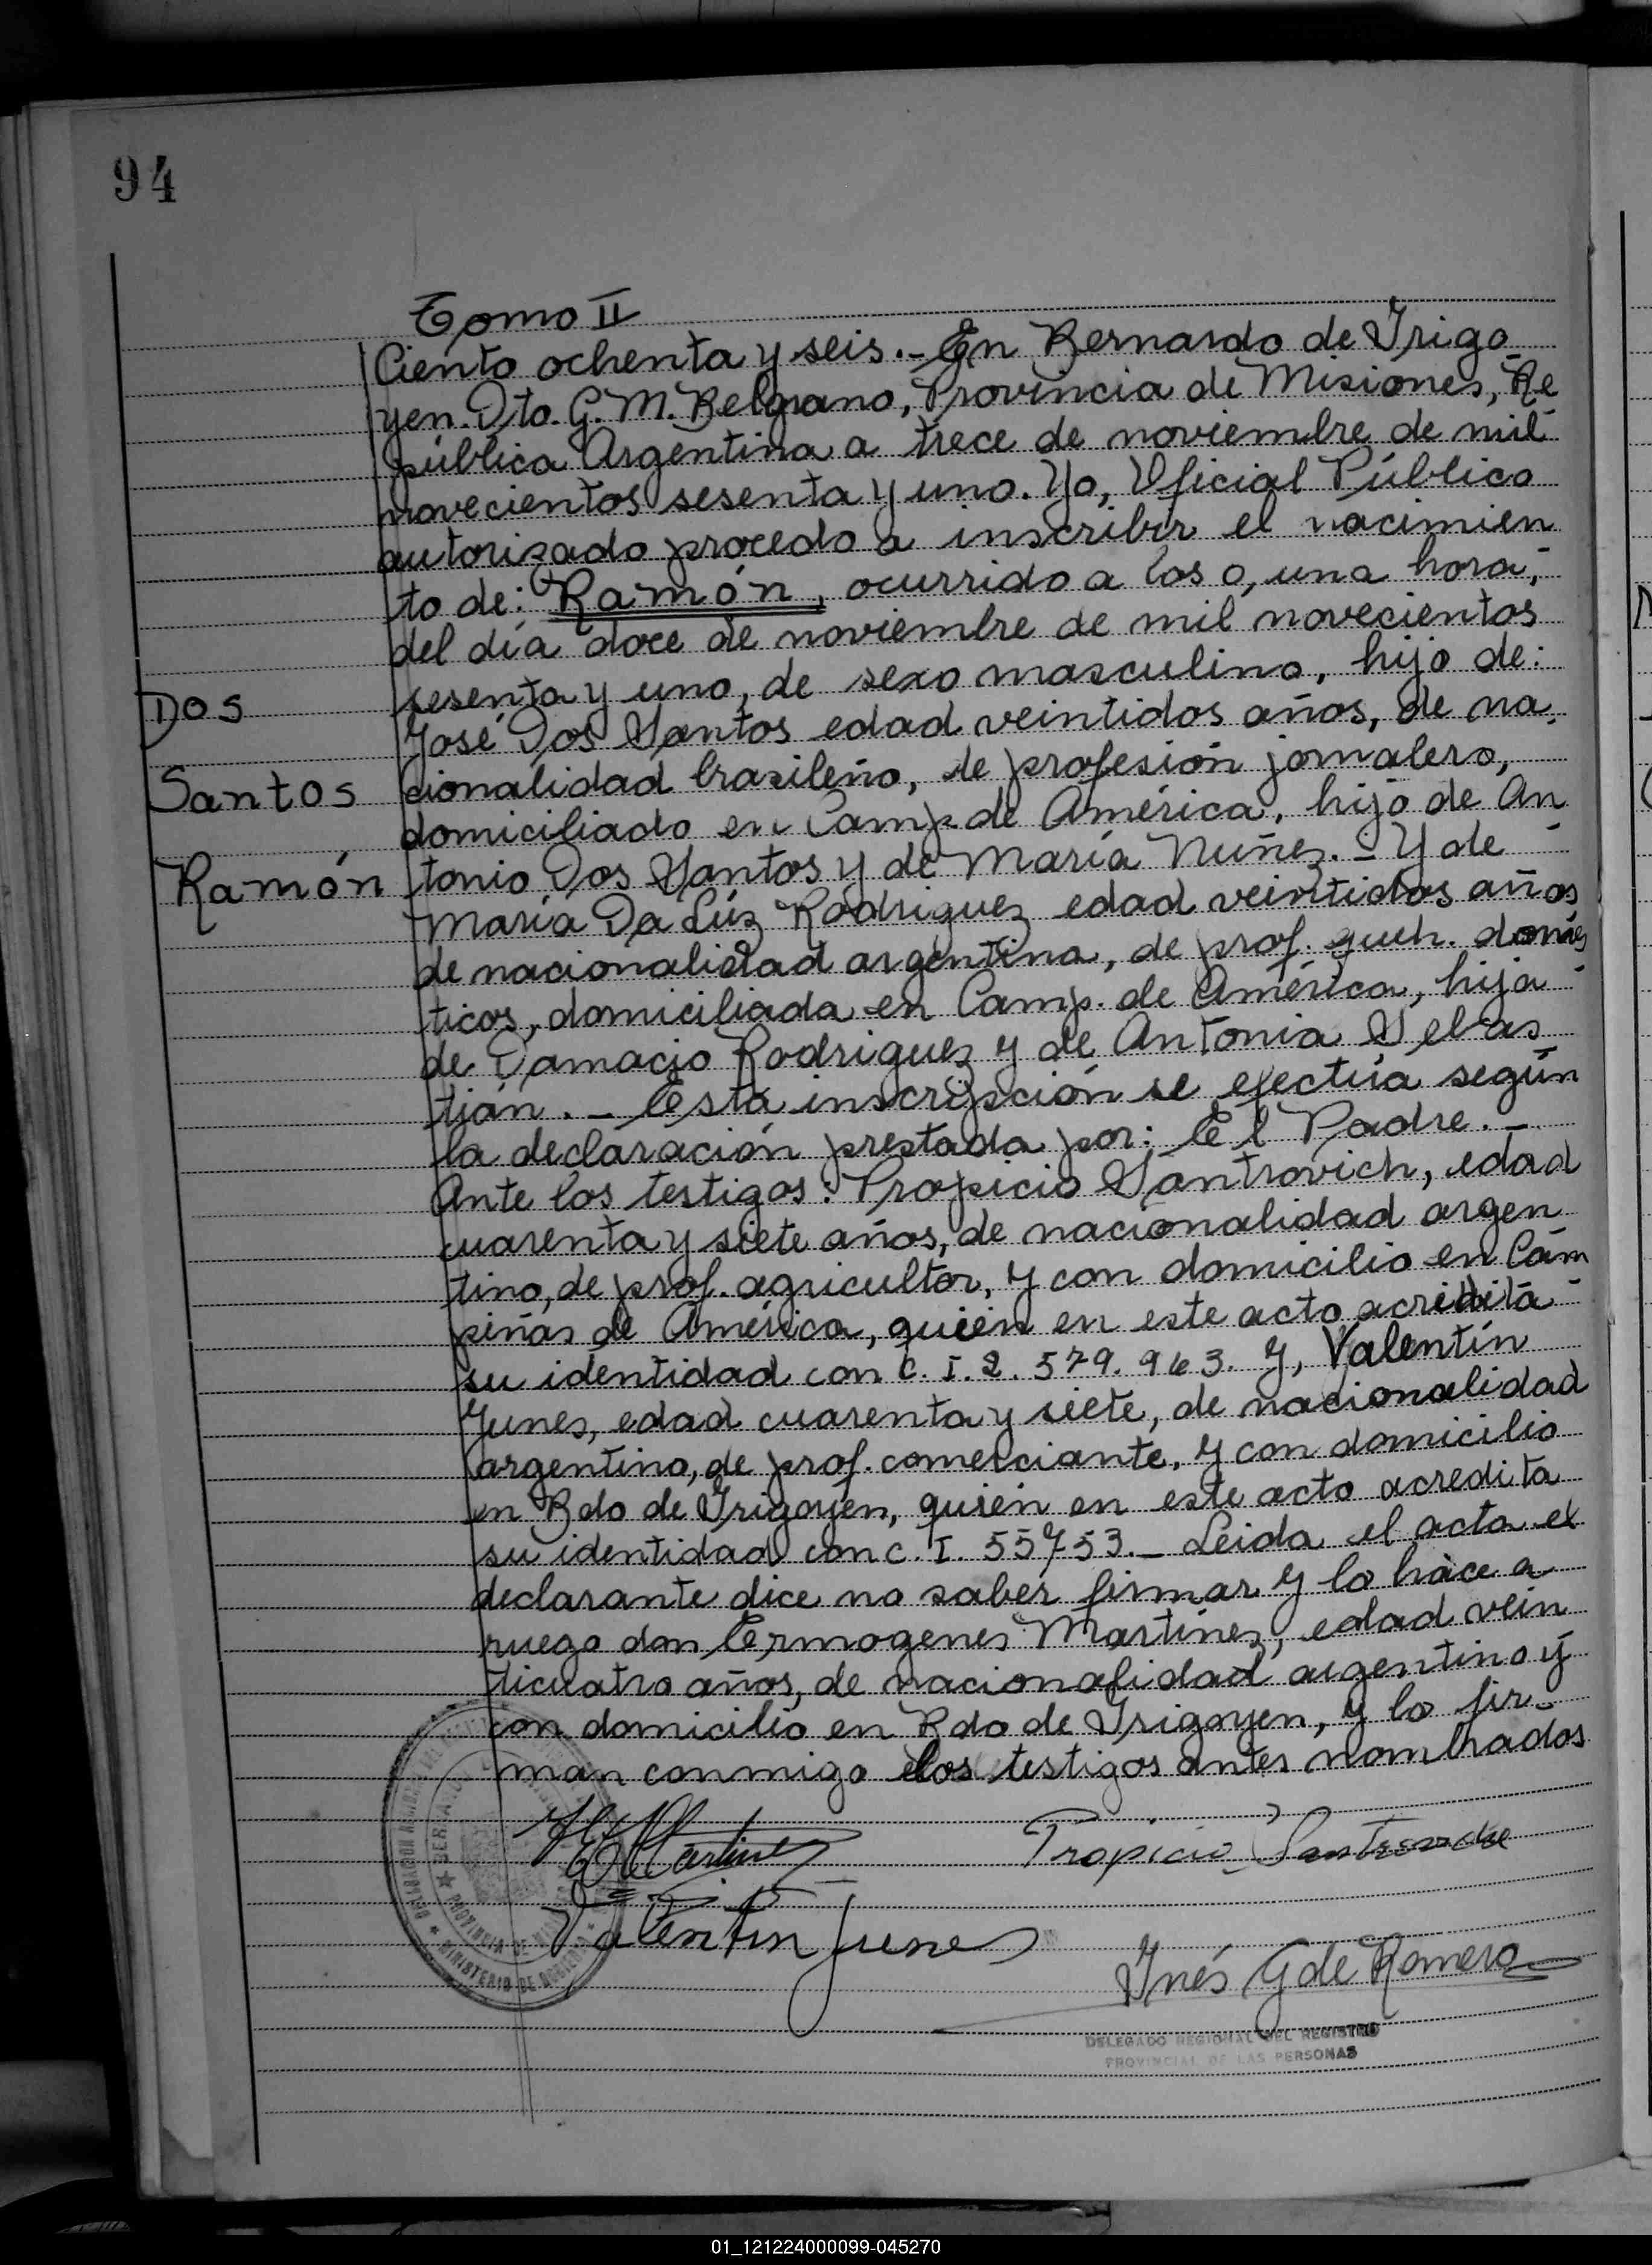 94
Tomo II
Ciento ochenta y seis.- En Bernardo de Yrigo
yen. Dto. G. M. Belgrano, Provincia de Misiones, Re
pública Argentina a trece de noviembre de mil
novecientos sesenta y uno. Yo, Oficial Público
autorizado procedo a inscribir el nacimien
to de: Ramón, ocurrido a las 0, una hora,
del día doce de noviembre de mil novecientos
sesenta y uno, de sexo masculino, hijo de:
José Dos Santos edad veintidos años, de na
cionalidad brasileño, de profesión jornalero,
domiciliado en Camp. de América, hijo de An
tonio Dos Santos y de María Nuñez.- Y de
María Da Lúz Rodriguez edad veintidos años
de nacionalidad argentina, de prof. queh. domés
ticos, domiciliada en Camp. de América, hija
de Damacio Rodriguez y de Antonia Sebas
tián.- Esta inscripción se efectúa según
la declaración prestada por: El Padre.-
Ante los testigos: Propicio Santrovich, edad
cuarenta y siete años, de nacionalidad argen
tino, de prof. agricultor, y con domicilio en Cam
piñas de América, quien en este acto acredita
su identidad con C. I. 2. 579. 963. Y, Valentín
Yunes, edad cuarenta y siete, de nacionalidad
argentino, de prof. comerciante, y con domicilio
en Bdo de Yrigoyen, quien en este acto acredita
su identidad con c. I. 55753.- Leida el acta el
declarante dice no saber firmar y lo hace a
ruego don Ermogenes Martínez, edad vein
ticuatro años, de nacionalidad argentino y
con domicilio en Bdo de Yrigoyen, y lo fir-
man conmigo los testigos antes nombrados
Dos
Santos
Ramón
Martinez
Propicio
Valentin Junes
Ynés G de Romero
DELEGADO REGIONAL DEL REGISTRO
PROVINCIAL DE LAS PERSONAS
PROVINCIA DE
MINISTERIO DE GOBIERNO
01_121224000099-045270